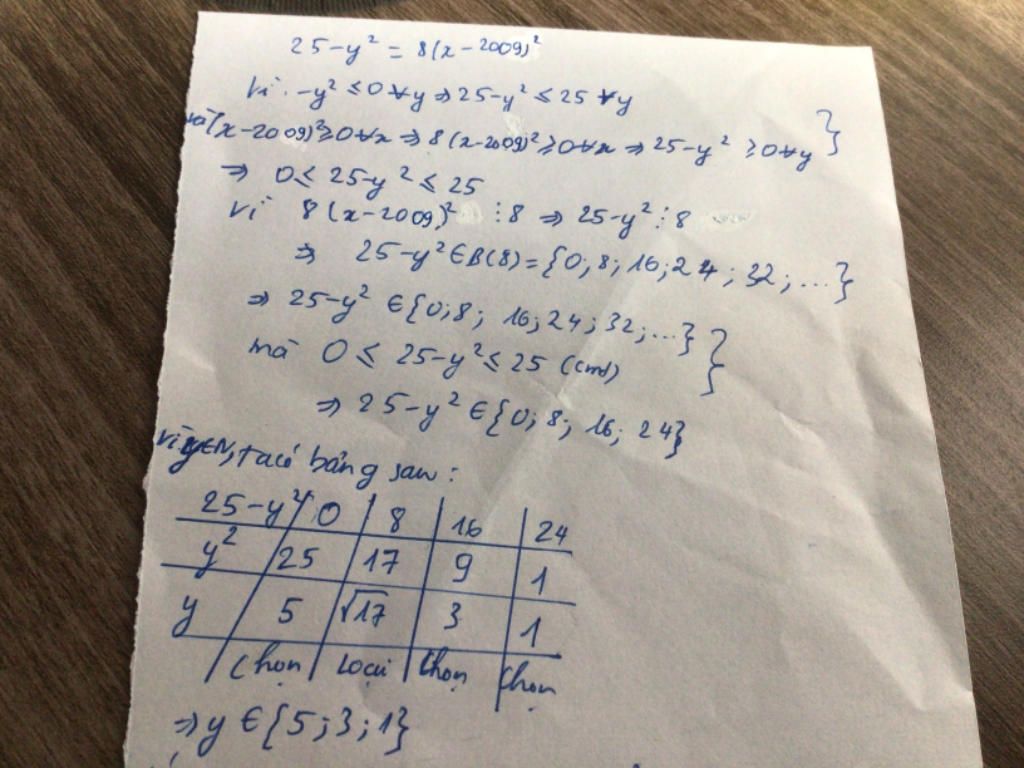 25-y² = 8(x-2009)²
Vì -y² ≤ 0 ∀y ⇒ 25-y² ≤ 25 ∀y
mà (x-2009)² ≥ 0 ∀x ⇒ 8(x-2009)² ≥ 0 ∀x ⇒ 25-y² ≥ 0 ∀y }
⇒ 0 ≤ 25-y² ≤ 25
Vì 8(x-2009)² ⋮ 8 ⇒ 25-y² ⋮ 8
⇒ 25-y² ∈ B(8) = {0; 8; 16; 24; 32; ...}
⇒ 25-y² ∈ {0; 8; 16; 24; 32; ...} }
mà 0 ≤ 25-y² ≤ 25 (cmt)
⇒ 25-y² ∈ {0; 8; 16; 24}
Vì y∈N, ta có bảng sau:
25-y² 0 8 16 24
y² 25 17 9 1
y 5 √17 3 1
Chọn Loại Chọn Chọn
⇒ y ∈ {5; 3; 1}